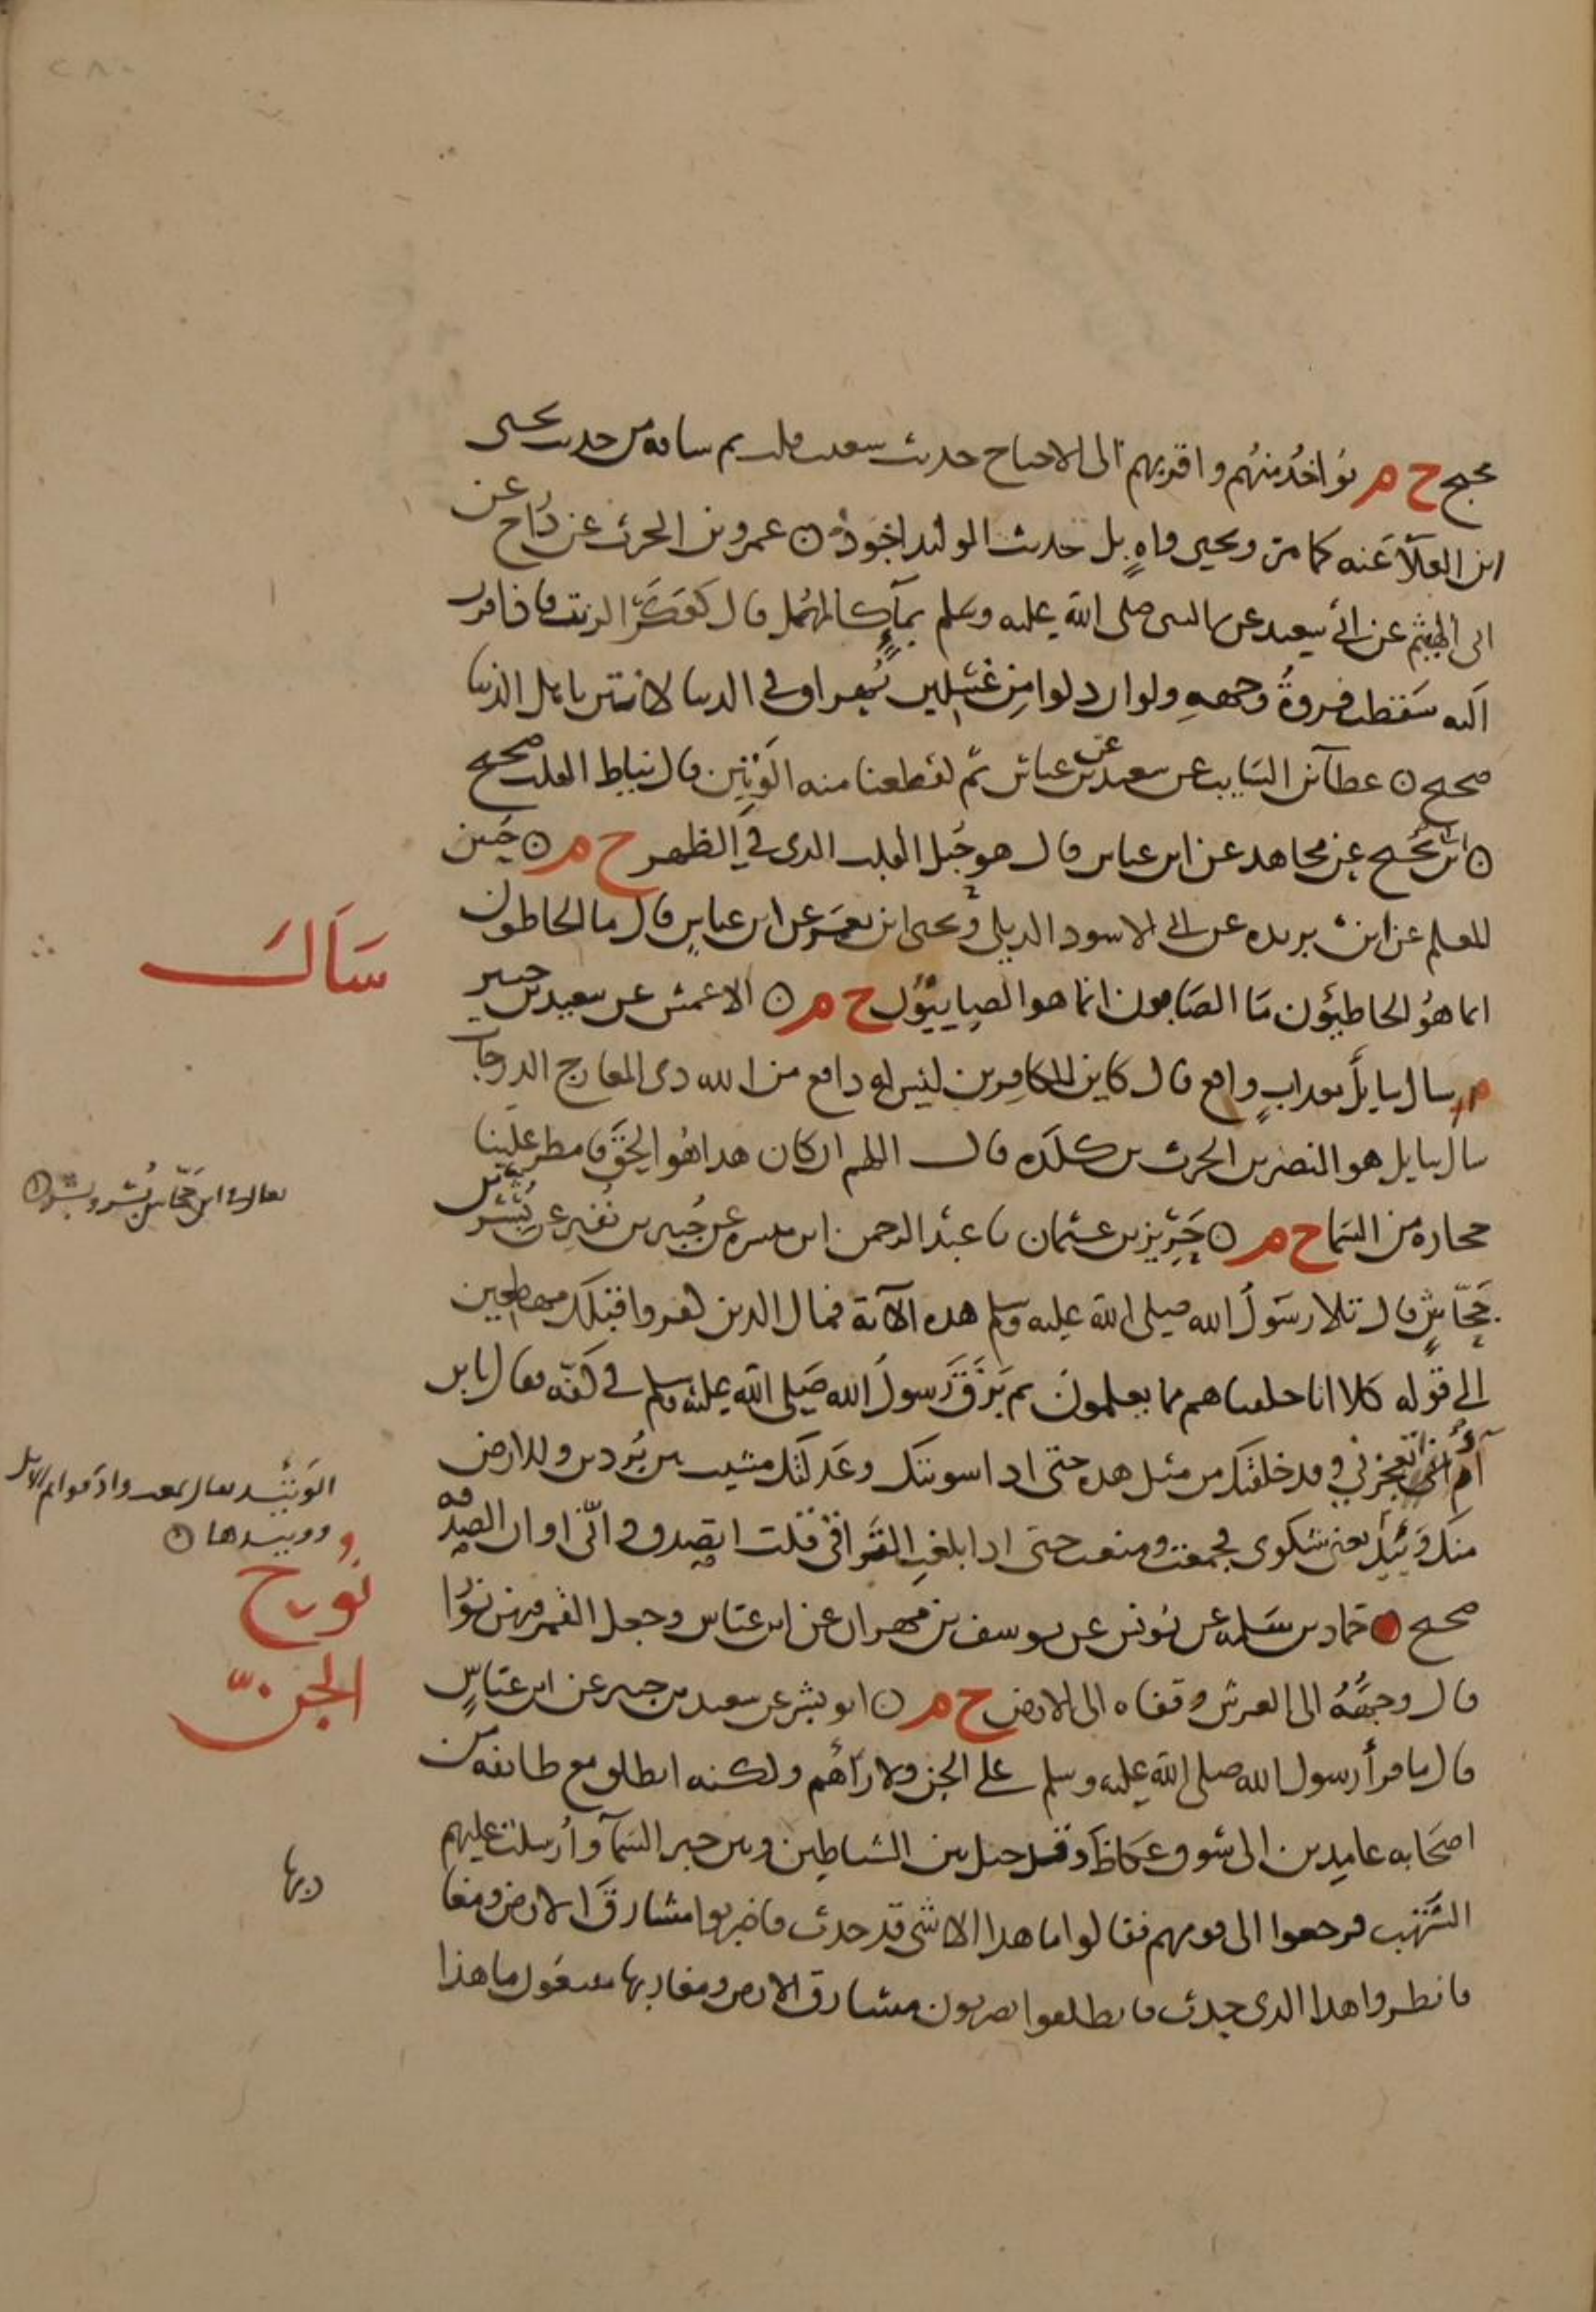 صحيح ح م نواخذ منهم واقربهم الى الاحتجاج حديث شعيب قلت ثم ساقه من حديث يحيى
ابن العلا عنه كما مر ويحيى واهٍ بل حديث الوليد اجود ⊙ عمرو بن الحرث عن دراج عن
ابى الهيثم عن ابي سعيد عن النبى صلى الله عليه وسلم بماءٍ كالمهل قال كعكر الزيت فاذا قرب
اليه سقطت فروة وجهه ولو ان دلوا من غسلين يُهراق في الدنيا لانتن باهل الدنيا
صحيح ⊙ عطا بن السايب عن سعيد عن بن عباس ثم لقطعنا منه الوتين قال نياط القلب صحيح
⊙ ابن ابي نجيح عن مجاهد عن ابن عباس قال هو حبل القلب الذى في الظهر ح م ⊙ حسين
المعلم عن ابن بريده عن ابى الاسود الديلى ويحيى ابن يعمر عن ابن عباس قال ما الخاطون
انما هو الخاطيؤن ما الصابون انما هو الصابيؤن ح م ⊙ الاعمش عن سعيد بن جبير
سال سايلٌ بعذابٍ واقع قال كاين للكافرين ليس له دافع من الله ذى المعارج الدرجات
سَأل
سال سايل هو النضر بن الحرث بن كلده قال اللهم ان كان هذا هو الحق فامطر علينا
حجاره من السما ح م ⊙ حَرِيز بن عثمان نا عبد الرحمن ابن ميسره عن جُبير بن نُفير عن بُسْر بن
يقال له ابن جَحّاش بُسْر وبشر ⊙
جَحّاشٍ قال تلا رسول الله صلى الله عليه وسلم هذه الآية فمال الذين كفروا قبلك مهطعين
إلى قوله كلا انا خلقناهم مما يعلمون ثم بَزَقَ رسول الله صلى الله عليه وسلم في كفّه فقال يا بن
آدم أنى تعجزني وقد خلقتك من مثل هذه حتى اذا سويتك وعدلتك مشيت بين بُردين وللارض
منك وَئيدٌ يعنى شكوى فجمعت ومنعت حتى اذا بلغت التراقى قلت اتصدق وانّى اوان الصدقه
الوئيد يقال سمعت واد قوايم الابل
ووييدها ⊙
صحيح ⊙ حماد بن سلمه عن يونس عن يوسف بن مهران عن ابن عباس وجعل القمر فيهن نورا
نُوح
قال وجهُهُ الى العرش وقفاه الى الارض ح م ⊙ ابو بشر عن سعيد بن جبير عن ابن عباسٍ
الجن
قال ما قرأ رسول الله صلى الله عليه وسلم على الجن ولا رآهُم ولكنه انطلق مع طايفه من
اصحابه عامدين الى سوق عكاظ وقد حيل بين الشياطين وبين خبر السمآ وأُرسلت عليهم
الشهب فرجعوا الى قومهم فقالوا ما هذا الا لشى قد حدث فاضربوا مشارق الارض ومغا
ربها
فانظروا هذا الذى حدث فانطلقوا يضربون مشارق الارض ومغاربها يبتغون ما هذا